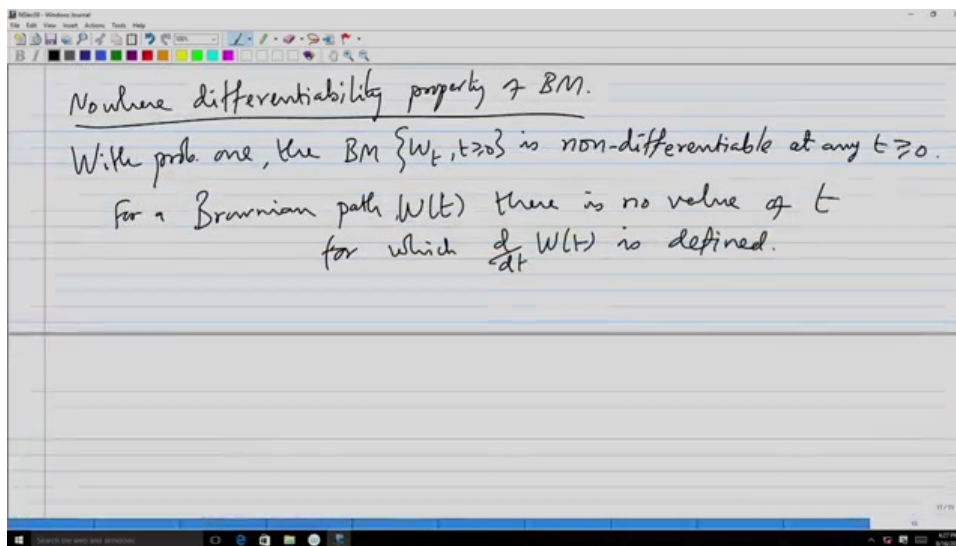 NSlec09 - Windows Journal
File Edit View Insert Actions Tools Help
Nowhere differentiability property of BM.
With prob. one, the BM {W_t, t≥0} is non-differentiable at any t ≥ 0.
For a Brownian path, W(t) there is no value of t
for which d/dt W(t) is defined.
11/11
Search the web and Windows
4:27 PM